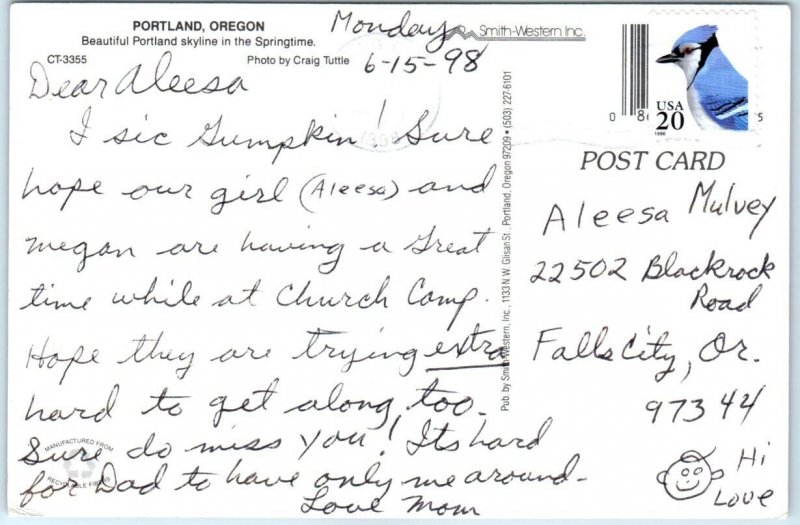 PORTLAND, OREGON
Beautiful Portland skyline in the Springtime.
CT-3355 Photo by Craig Tuttle
Smith-Western Inc.
Monday
6-15-98
Dear Aleesa
I sic Gumpkin! Sure
hope our girl (Aleesa) and
megan are having a Great
time while at Church Camp.
Hope they are trying extra
hard to get along, too.
Sure do miss you! Its hard
for Dad to have only me around-
Love Mom
MANUFACTURED FROM
RECYCLABLE FIBERS
Pub. by Smith-Western, Inc., 1133 N.W. Glisan St., Portland, Oregon 97209 • (503) 227-6101
USA
20
1996
POST CARD
Aleesa Mulvey
22502 Blackrock
Road
Falls City, Or.
97344
Hi
Love